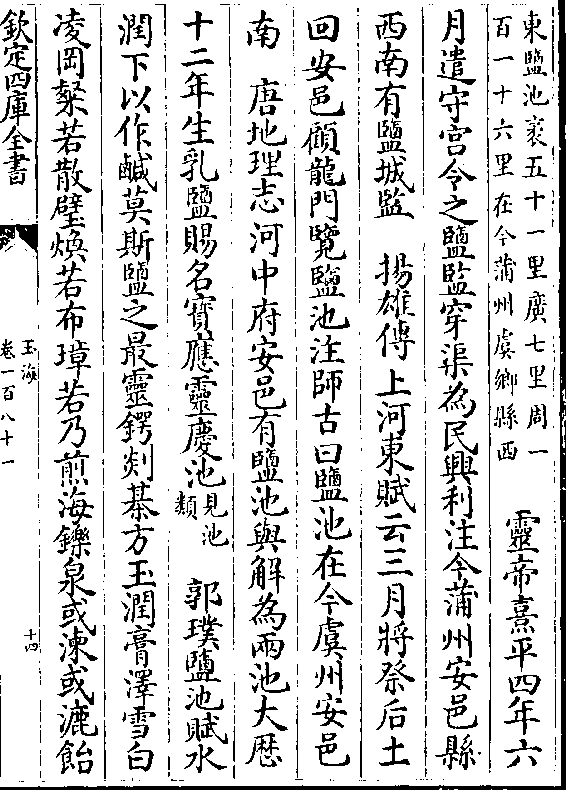 東鹽池袤五十一里廣七里周一
百一十六里在今蒲州虞鄉縣西
靈帝熹平四年六
月遣守宫令之鹽監穿渠為民興利注今蒲州安邑縣
西南有鹽城監 揚雄傳上河東賦云三月將祭后土
回安邑顧龍門覽鹽池注師古曰鹽池在今虞州安邑
南 唐地理志河中府安邑有鹽池與解為兩池大厯
十二年生乳鹽賜名寶應靈慶池見池類 郭璞鹽池賦水
潤下以作鹹莫斯鹽之最靈鍔剡棊方玉潤膏澤雪白
凌岡粲若散璧煥若布璋若乃煎海鑠泉或凍或漉飴
欽定四庫全書
玉海
卷一百八十一
十四